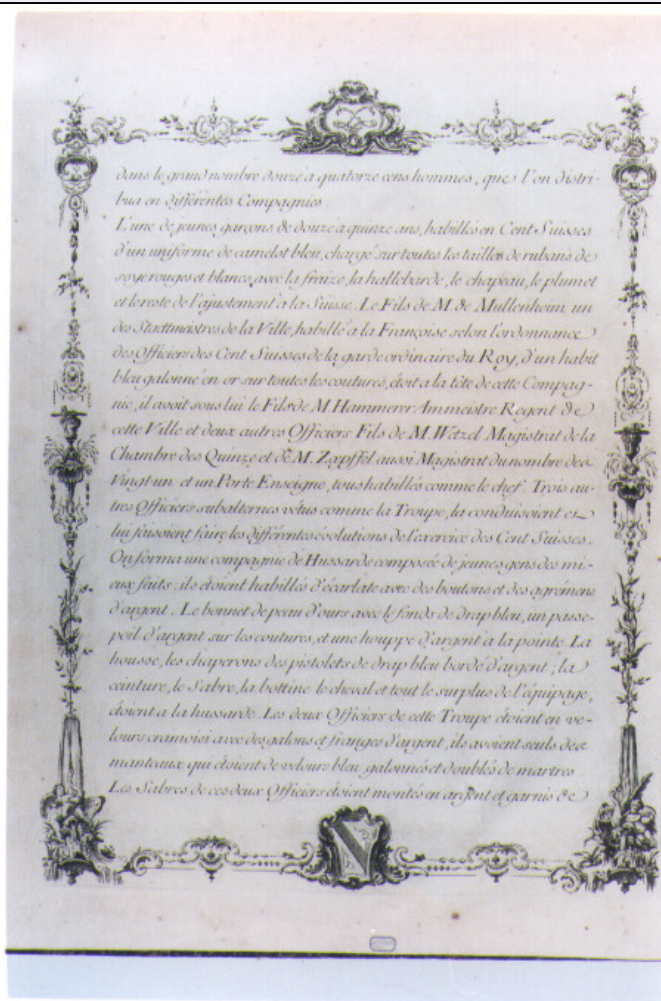 dans le grand nombre douze a quatorze cens hommes, que l'on distri-
bua en différentes Compagnies.
L'une de jeunes garçons de douze a quinze ans, habillés en Cent-Suisses
d'un uniforme de camelot bleu, chargé sur toutes les tailles de rubans de
soye rouges et blancs, avec la fraize, la hallebarde, le chapeau, le plumet
et le reste de l'ajustement a la Suisse. Le Fils de M. de Mullenheim un
des Stadtmeistres de la Ville, habillé a la Françoise selon l'ordonnance
des Officiers des Cent Suisses de la garde ordinaire du Roy, d'un habit
bleu galonné en or sur toutes les coutures, étoit a la tête de cette Compag-
nie, il avoit sous lui le Fils de M. Hammerer Ammeistre Regent de
cette Ville et deux autres Officiers Fils de M. Wetzel Magistrat de la
Chambre des Quinze et de M. Zoepffel aussi Magistrat du nombre des
Vingt-un et un Porte Enseigne, tous habillés comme le chef. Trois au-
tres Officiers subalternes vetus comme la Troupe, la conduisoient et
lui faisoient faire les différentes évolutions de l'exercice des Cent Suisses.
On forma une compagnie de Hussards composée de jeunes gens des mi-
eux faits: ils étoient habillés d'écarlate avec des boutons et des agrémens
d'argent. Le bonnet de peau d'ours avec le fonds de drap bleu, un passe-
poil d'argent sur les coutures, et une houppe d'argent a la pointe. La
housse, les chaperons des pistolets de drap bleu bordé d'argent; la
ceinture, le Sabre, la bottine le cheval et tout le surplus de l'équipage,
étoient a la hussarde. Les deux Officiers de cette Troupe étoient en ve-
lours cramoisi avec des galons et franges d'argent, ils avoient seuls des
manteaux qui étoient de velours bleu galonnés et doublés de martres.
Les Sabres de ces deux Officiers étoient montés en argent et garnis de